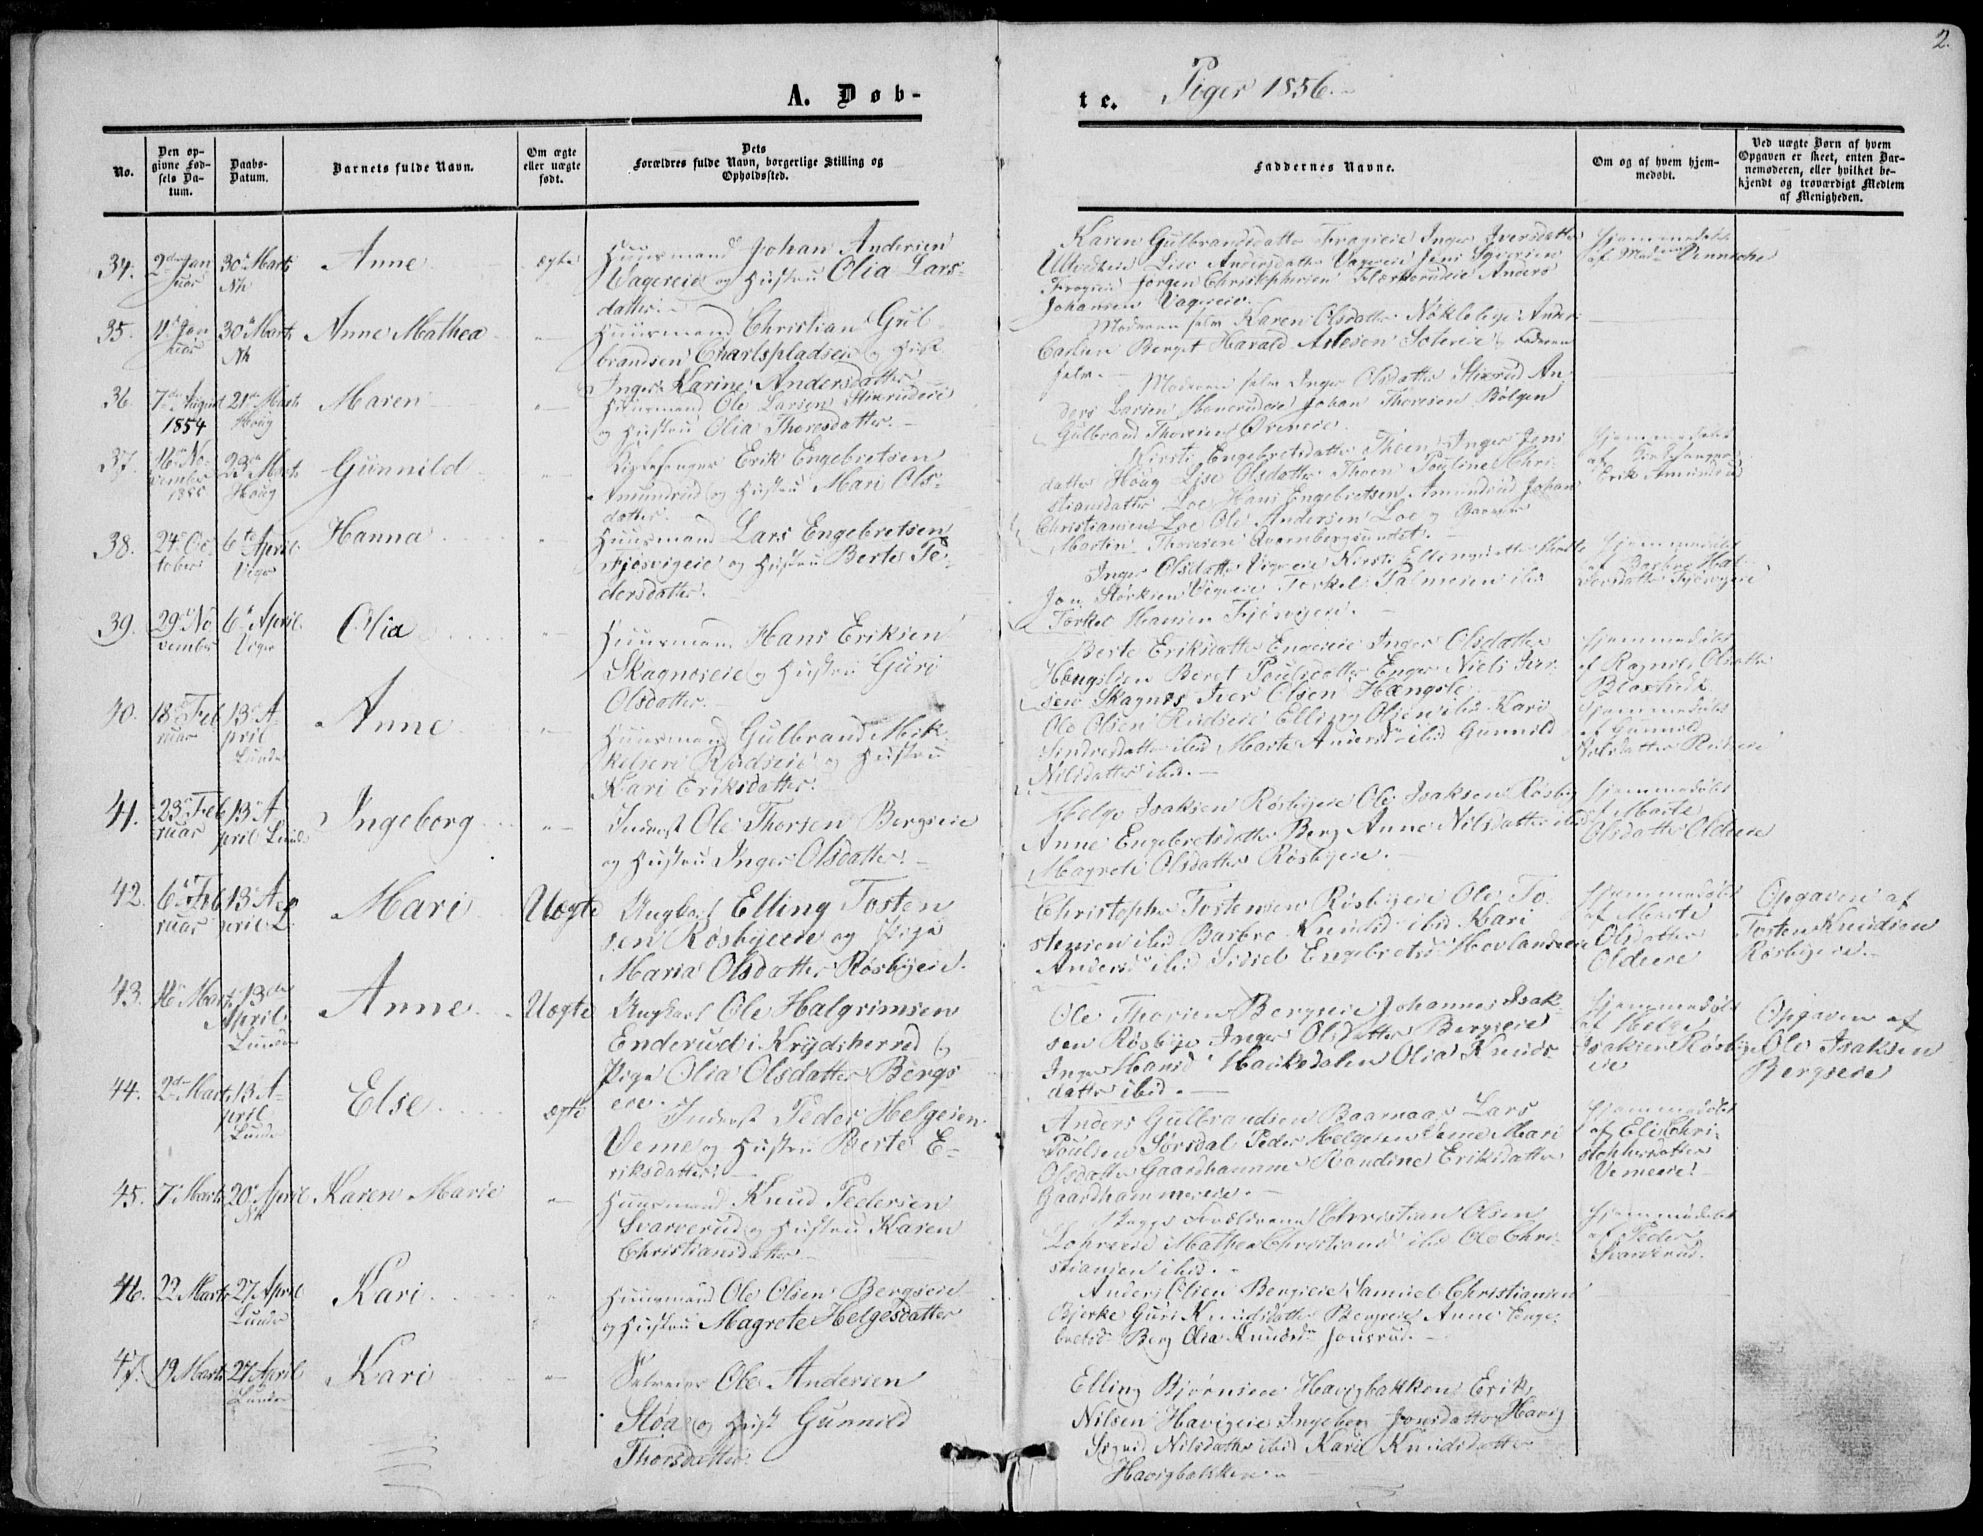 2.
A. Døb-
te. Piger 1856.
No.
Den op-
givne Fød-
sels Da-
tum.
Daabs-
Datum.
Barnets fulde Navn.
Om ægte
eller uægte
født.
Dets
Forældres fulde Navn, borgerlige Stilling og
Opholdssted.
Faddernes Navne.
Om og af hvem hjem-
medøbt.
Ved uægte Børn af hvem
Opgaven er skeet, enten Bar-
nemoderen, eller hvilket be-
kjendt og troværdigt Medlem
af Menigheden.
34. 2den Jan
uar
30 Marts
Nh
Anne
ægte
Huusmand Johan Andersen
Vagereie og Hustru Olia Lars-
datter
Karen Gulbrandsdatter Inger Iversdatter
Lise Andersdatter Vagereie
Jørgen Christophersen Anders
Johansen Vagereie.
Hjemmedøbt
35. Jan
uar
30 Marts
Nh
Anne Mathea
Huusmand Christian Gul-
brandsen og Hust
Inger Karine Andersdatter
Moderen selv Karen Olsdatter
Berget Harald Aslesen Faderen
selv.
36. 7de August
1854
21de Marts
Houg
Maren
Huusmand Ole Larsen
og Hustru Olia Thoresdatter.
Moderen selv Inger Olsdatter An-
ders Larsen Johan Thoresen Bølgen
Gulbrand Thoresen
37. 16 No-
vember
1855
23 Marts
Houg
Gunnild
Kirkesanger Erik Engebretsen
Amundrud og Hustru Mari Ols-
datter.
Kirsti Engebretsdatter Thoen Inger Jens
datter Houg Lise Olsdatter Thoen Pauline Chri-
stiansdatter Loe Hans Engebretsen Amundrud Johan
Christiansen Loe Ole Andersen Loe
Martin Thoresen
Hjemmedøbt
af Kirkesanger
Erik Amundrud
38. 24 Oc
tober
6te April
Viger
Hanna
Huusmand Lars Engebretsen
Fjøsvigeie og Hustru Berte Pe-
dersdatter.
Inger Olsdatter Vigereie Kirsti Ellingsdatter
Jon Størksen Vigereie Torkel Palmesen ibid
Torkel Hansen Fjøsvigeie.
Hjemmedøbt
af Barbro Hal-
vorsdatter Fjøsvigeie
39. 29 No
vember
6 April
Viger
Olia
Huusmand Hans Eriksen
Skagnæseie og Hustru Guri
Olsdatter.
Berte Eriksdatter Engereie Inger Olsdatter
Hængslien Beret Paulsdatter Enger Niels Iver-
sen Skagnæs Iver Olsen Hængsle
Hjemmedøbt
af Ragnild Olsdatter
40. 18 Feb
ruar
13 A-
pril
Lunder
Anne
Huusmand Gulbrand Mik-
kelsen Rudseie og Hustru
Kari Eriksdatter.
Ole Olsen Rudseie Elling Olsen ibid Kari
Sindresdatter ibid Marte Andersd ibid Gunnild
Nilsdatter ibid.
Hjemmedøbt
af Gunnild
Nilsdatter Rudseie
41. 23 Feb
ruar
13 A-
pril Lunder
Ingeborg
Inderst Ole Thorsen Bergseie
og Hustru Inger Olsdatter.
Helge Isaksen Røsbyeie Ole Isaksen Røsby
Anne Engebretsdatter Berg Anne Nilsdatter ibid
Magrete Olsdatter Røsbyeie.
Hjemmedøbt
af Marte
Olsdatter Oldeeie
42. 6 Feb
ruar
13 A-
pril L.
Mari
Uægte
Ungkarl Elling Tosten
sen Røsbyeie og Pige
Maria Olsdatter Røsbyeie.
Christopher Tostensen Røsbyeie Ole To-
stensen ibid Barbro Knudsd ibid Kari
Andersd ibid Sidsel Engebretsd Hovlandseie
Hjemmedøbt
af Marte
Olsdatter
Oldeeie
Opgaven af
Tosten Knudsen
Røsbyeie.
43. 16 Marts
13de
April
Lunder
Anne
Uægte
Ungkarl Ole Halgrimsen
Enderud i Krydsherred og
Pige Olia Olsdatter Bergs-
eie.
Ole Thorsen Bergseie Johannes Isak
sen Røsbye Inger Olsdatter Bergseie
Inger Hansd Haukedalen Olia Knuds
datter ibid.
Hjemmedøbt
af Helge
Isaksen Røsbye
eie
Opgaven af
Ole Isaksen
Bergseie
44. 2den Marts
13 A-
pril
Lunder
Else
ægte
Inderst Peder Helgesen
Veme og Hustru Berte E-
riksdatter.
Anders Gulbrandsen Baarnaas Lars
Poulsen Sørsdal Peder Helgesen Veme Mari
Olsdatter Gaardhammer Randine Eriksdatter
Gaardhammereie.
Hjemmedøbt
af Eli Chri-
stophersdatter
Vemeeie.
45. 7 Marts
20 April
Nh
Karen Marie
Huusmand Knud Pedersen
Svarverud og Hustru Karen
Christiansdatter
Forældrene Christian Olsen
Mathea Christiansd ibid Ole Chri-
stiansen ibid.
Hjemmedøbt
af Peder
Svarverud.
46. 22 Marts
27 April
Lunder
Kari
Huusmand Ole Olsen Bergseie
og Hustru Magrete Helgesdatter
Anders Olsen Bergseie Samuel Christiansen
Bjerke Guri Knudsdatter Bergseie Anne Enge-
bretsd Berg Olia Knudsd Jonsrud.
47. 19 Marts
27 April
Lunder
Kari
Selveier Ole Andersen
Sløa og Hust Gunnild
Thorsdatter.
Elling Bjørnsen Havigbakken Erik
Nilsen Havigeie Ingebor Jonsdatter Havig
Sigrid Nilsdatter ibid Kari Knudsdatter
Havigbakken.